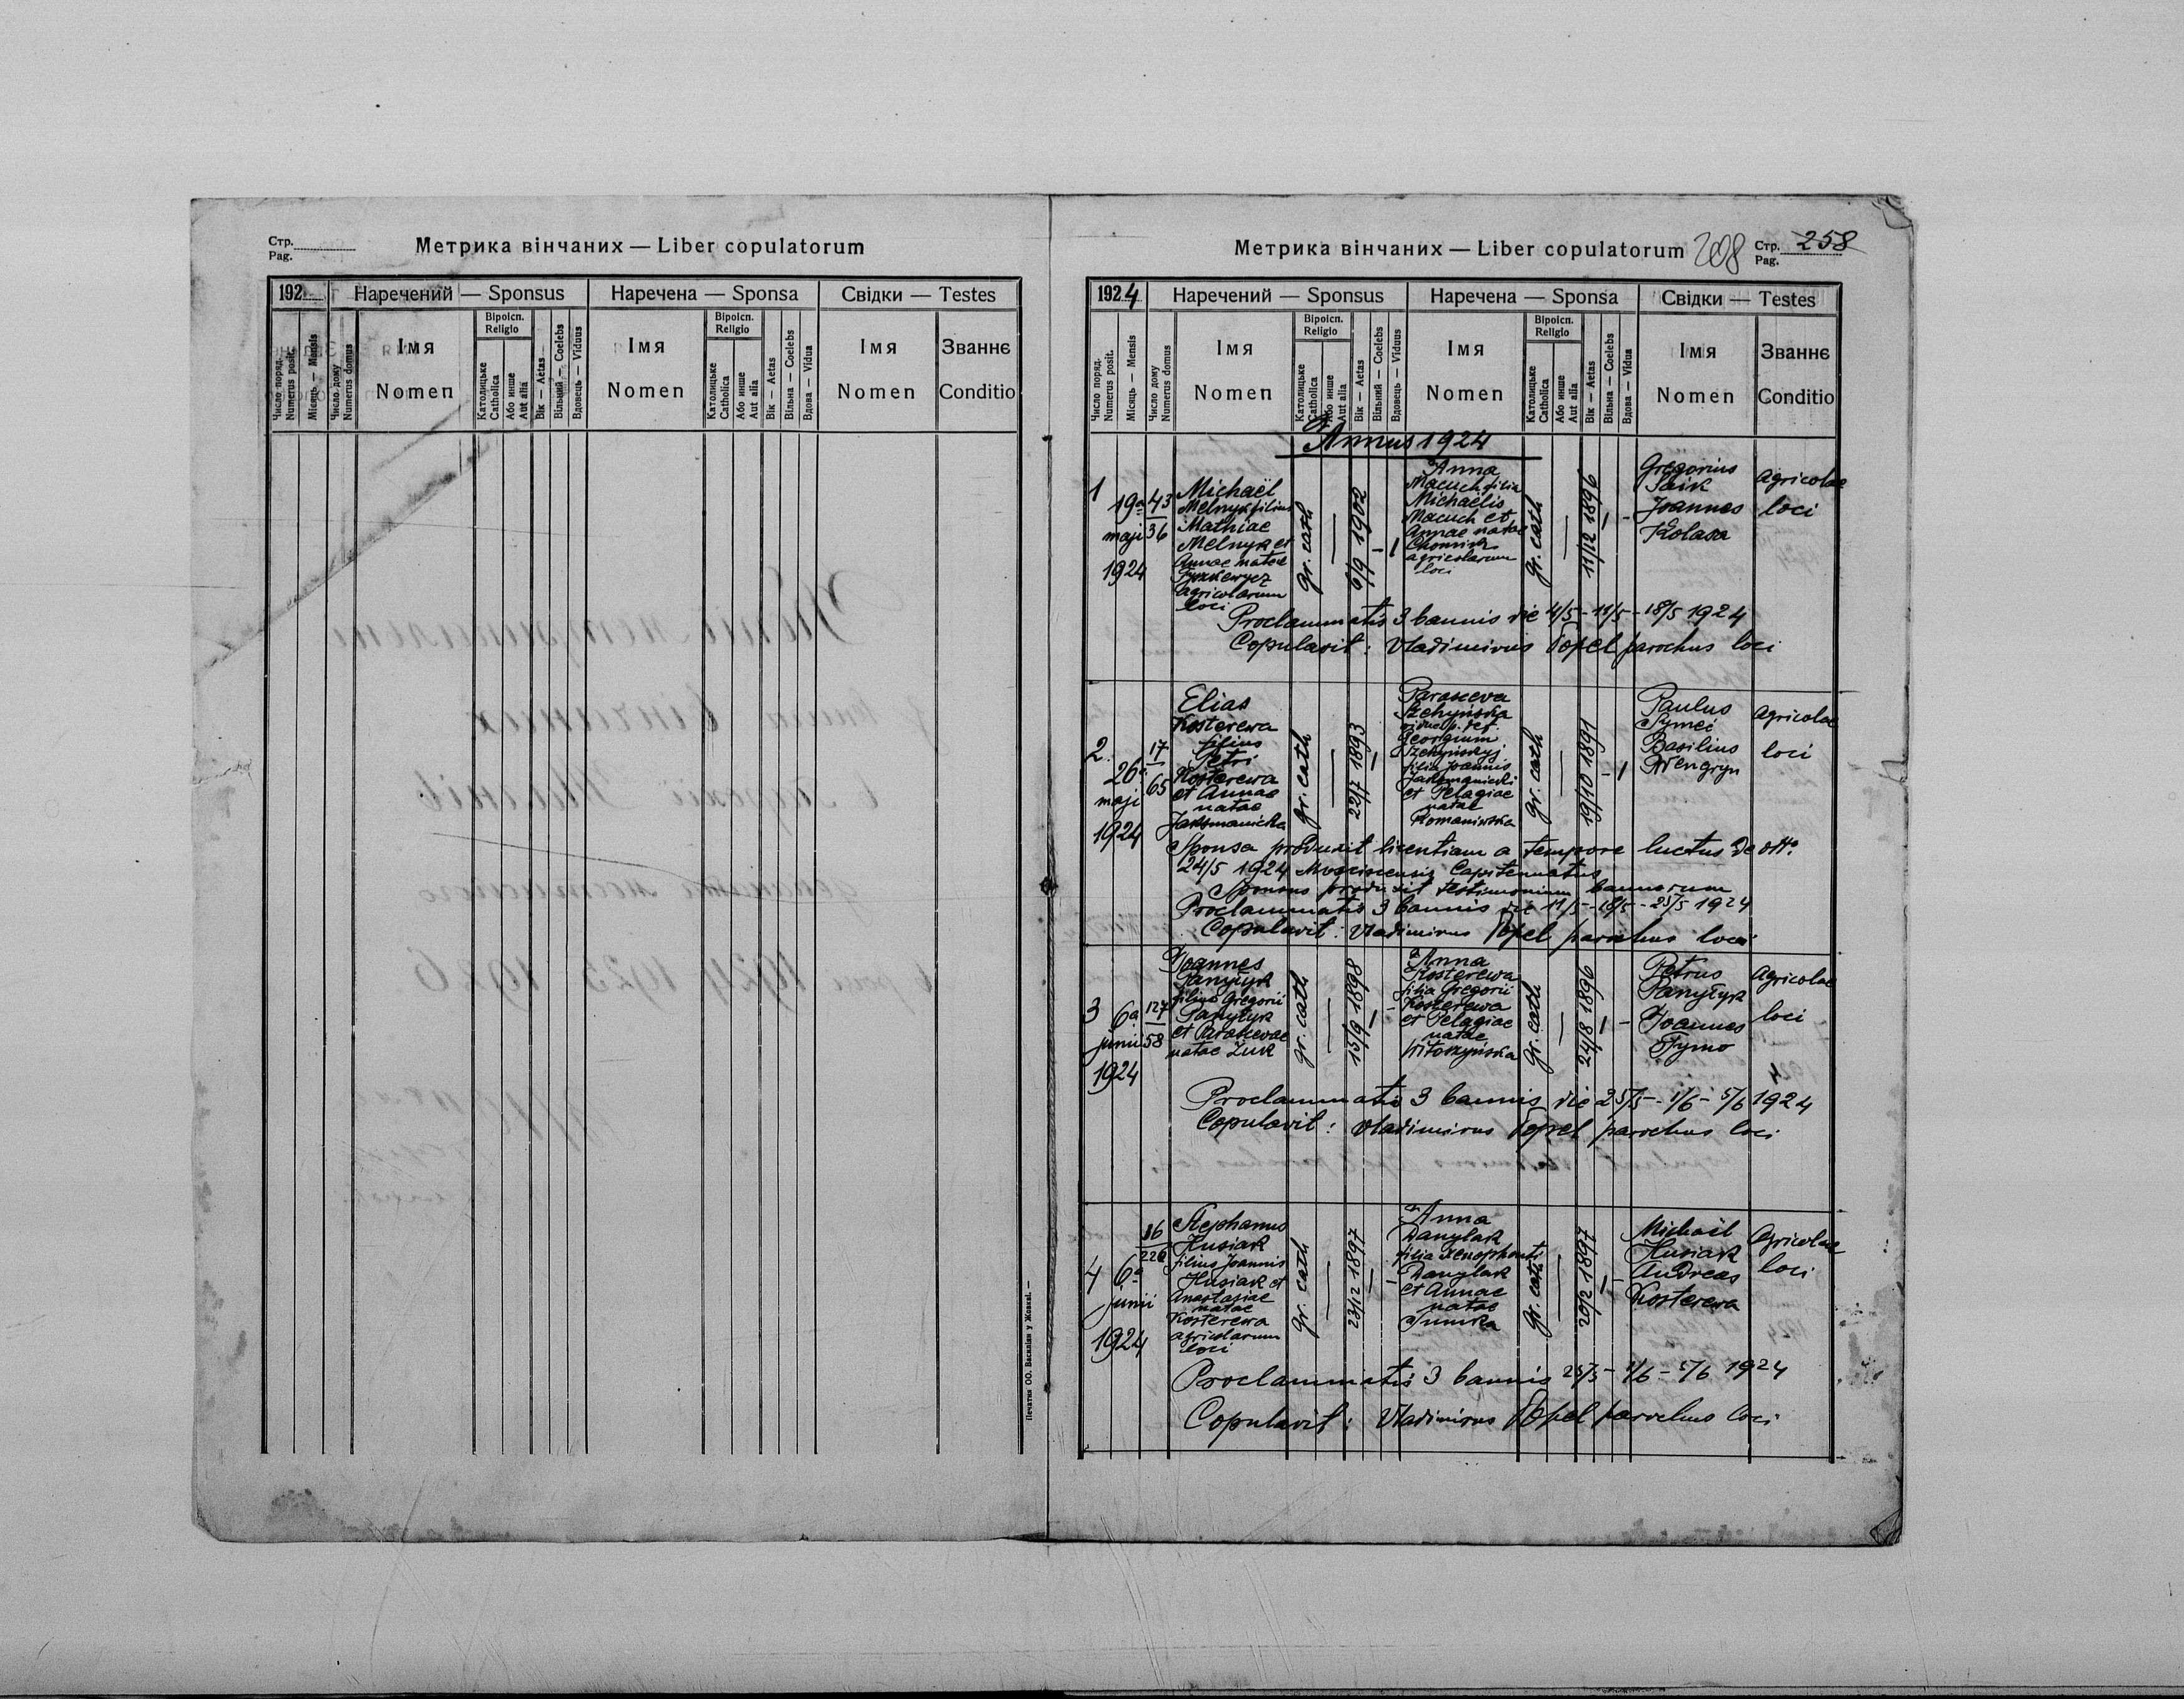 Стр.
Pag.
Метрика вінчаних — Liber copulatorum
192
Наречений — Sponsus
Наречена — Sponsa
Свідки — Testes
Число поряд.
Numerus posit.
Місяць — Mensis
Число дому
Numerus domus
Імя
Nomen
Віроісп.
Religio
Католицьке
Catholica
Або инше
Aut alia
Вік — Aetas
Вільний — Coelebs
Вдовець — Viduus
Імя
Nomen
Віроісп.
Religio
Католицьке
Catholica
Або инше
Aut alia
Вік — Aetas
Вільна — Coelebs
Вдова — Vidua
Імя
Nomen
Званнє
Conditio
Печатня ОО. Василіян у Жовкві. —
Метрика вінчаних — Liber copulatorum
208
Стр.
Pag.
258
1924
Наречений — Sponsus
Наречена — Sponsa
Свідки — Testes
Число поряд.
Numerus posit.
Місяць — Mensis
Число дому
Numerus domus
Імя
Nomen
Віроісп.
Religio
Католицьке
Catholica
Або инше
Aut alia
Вік — Aetas
Вільний — Coelebs
Вдовець — Viduus
Імя
Nomen
Віроісп.
Religio
Католицьке
Catholica
Або инше
Aut alia
Вік — Aetas
Вільна — Coelebs
Вдова — Vidua
Імя
Nomen
Званнє
Conditio
Annus 1924
1
19a
maji
1924
43
36
Michaël
Melnyk filius
Mathiae
Melnyk et
Annae natae
agricolarum
loci
gr. cath
6/9 1902
Anna
Macuch filia
Michaëlis
Macuch et
Annae natae
agricolarum
loci
gr. cath
11/12 1896
Gregorius
Saik
Joannes
Kolasa
agricolae
loci
Proclammatis 3 bannis die 4/5 - 11/5 - 18/5 1924
Copulavit: Vladimirus Popel parochus loci
2.
26a
maji
1924
17
65
Elias
Kosterewa
filius
Petri
Kosterewa
et Annae
natae
Jaksmanicka
gr. cath
22/7 1893
Parasceva
Georgium
filia Joannis
Jaksmanicki
et Pelagiae
natae
Romaniwska
gr. cath
19/10 1891
Paulus
Basilius
Wengryn
agricolae
loci
Sponsa produxit licentiam a tempore luctus de dtto
24/5 1924 Capitenatus
Sponsus produxit testimonium bannorum
Proclammatis 3 bannis die 11/5 - 18/5 - 25/5 1924
Copulavit: Vladimirus Popel parochus loci
3
6a
junii
1924
127
58
Joannes
Panyłyk
filius Gregorii
Panyłyk
et Parascevae
natae Żuk
gr. cath
15/9 1898
Anna
Kosterewa
filia Gregorii
Kosterewa
et Pelagiae
natae
gr. cath
24/8 1896
Petrus
Panyłyk
Joannes
Tymo
agricolae
loci
Proclammatis 3 bannis die 25/5 - 1/6 - 5/6 1924
Copulavit: Vladimirus Popel parochus loci
4
6a
junii
1924
16
226
Stephanus
Husiak
filius Joannis
Husiak et
Anastasiae
natae
Kosterewa
agricolarum
loci
gr. cath
23/12 1897
Anna
Danylak
filia Xenophonti
Danylak
et Annae
natae
gr. cath
20/2 1897
Michaël
Husiak
Andreas
Kosterewa
agricolae
loci
Proclammatis 3 bannis 25/5 - 1/6 - 5/6 1924
Copulavit: Vladimirus Popel parochus loci